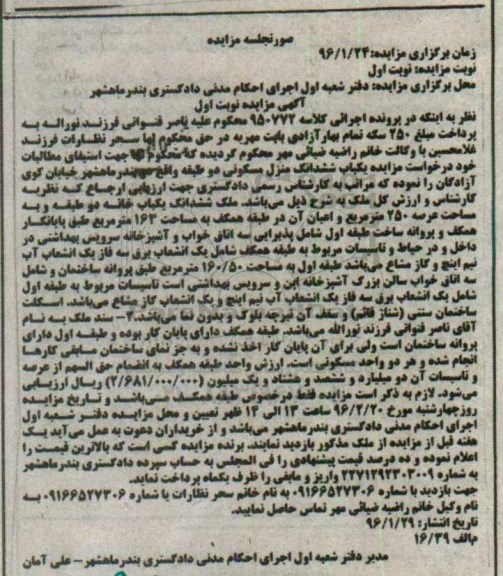 صورتجلسه مزایده
زمان برگزاری مزایده:۹۶/۱/۲۴
نوبت مزایده: نوبت اول
محل برگزاری مزایده: دفتر شعبه اول اجرای احکام مدنی دادگستری بندرماهشهر
آگهی مزایده نوبت اول
نظر به اینکه در پرونده اجرائی کلاسه ۹۵۰۷۷۲ محکوم علیه ناصر قنواتی فرزند نوراله به
پرداخت مبلغ ۲۵۰ سکه تمام بهارآزادی بابت مهریه در حق محکوم لها سحر نظارات فرزند
غلامحسین با وکالت خانم راضیه ضیائی مهر محکوم گردیده که محکوم لها جهت استیفای مطالبات
خود درخواست مزایده یکباب ششدانگ منزل مسکونی دو طبقه واقع در بندرماهشهر خیابان کوی
آزادگان را نموده که مراتب به کارشناس رسمی دادگستری جهت ارزیابی ارجاع که نظریه
کارشناس و ارزش کل ملک به شرح ذیل می‌باشد. ملک ششدانگ یکباب خانه دو طبقه و به
مساحت عرصه ۲۵۰ مترمربع و اعیان آن در طبقه همکف به مساحت ۱۶۳ مترمربع طبق پایانکار
همکف و پروانه ساخت طبقه اول شامل پذیرایی سه اتاق خواب و آشپزخانه سرویس بهداشتی در
داخل و در حیاط و تاسیسات مربوط به طبقه همکف شامل یک انشعاب برق سه فاز یک انشعاب آب
نیم اینچ و گاز مشاع می‌باشد طبقه اول به مساحت ۱۶۰/۵۰ مترمربع طبق پروانه ساختمان و شامل
سه اتاق خواب سالن بزرگ آشپزخانه اپن و سرویس بهداشتی است تاسیسات مربوط به طبقه اول
شامل یک انشعاب برق سه فاز یک انشعاب آب نیم اینچ و یک انشعاب گاز مشاع می‌باشد. اسکلت
ساختمان سنتی (شناژ قائم) و سقف آن تیرچه بلوک و بدون نما می‌باشد.۲- سند ملک به نام
آقای ناصر قنواتی فرزند نورالله می‌باشد. طبقه همکف دارای پایان کار بوده و طبقه اول دارای
پروانه ساختمان است ولی برای آن پایان کار اخذ نشده و به جز نمای ساختمان مابقی کارها
انجام شده و هر دو واحد مسکونی است. ارزش واحد طبقه همکف به انضمام حق السهم از عرصه
و تاسیسات آن دو میلیارد و ششصد و هشتاد و یک میلیون (۲/۶۸۱/۰۰۰/۰۰۰) ریال ارزیابی
می‌شود. لازم به ذکر است مزایده فقط درخصوص طبقه همکف می‌باشد و تاریخ مزایده
روز چهارشنبه مورخ ۹۶/۲/۲۰ ساعت ۱۳ الی ۱۴ ظهر تعیین و محل مزایده دفتر شعبه اول
اجرای احکام مدنی دادگستری بندرماهشهر می‌باشد و از خریداران دعوت به عمل می‌آید یک
هفته قبل از مزایده از ملک مذکور بازدید نمایند. برنده مزایده کسی است که بالاترین قیمت را
اعلام نموده و ده درصد قیمت پیشنهادی را فی المجلس به حساب سپرده دادگستری بندرماهشهر
به شماره ۲۲۷۱۲۹۲۳۰۳۰۰۹ واریز و مابقی را ظرف یکماه پرداخت نماید.
جهت بازدید با شماره ۰۹۱۶۶۵۲۷۳۰۶ به نام خانم سحر نظارات یا شماره ۰۹۱۶۶۵۲۷۳۰۶ به
نام وکیل خانم راضیه ضیائی مهر تماس حاصل نمایید.
تاریخ انتشار: ۹۶/۱/۲۹
م‌الف ۱۶/۳۹
مدیر دفتر شعبه اول اجرای احکام مدنی دادگستری بندرماهشهر – علی آمان